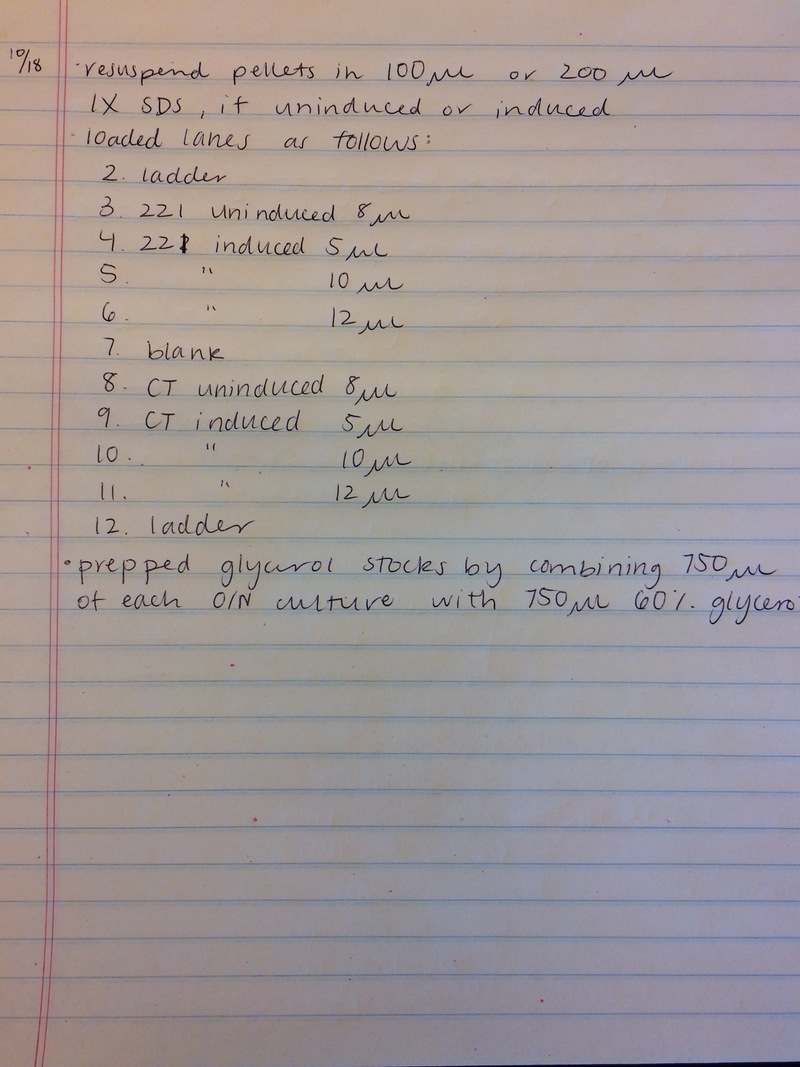 10/18
· resuspend pellets in 100 μl or 200 μl
1X SDS, if uninduced or induced
· loaded lanes as follows:
2. ladder
3. 221 uninduced 8μl
4. 221 induced 5μl
5. " 10 μl
6. " 12μl
7. blank
8. CT uninduced 8μl
9. CT induced 5μl
10. " 10μl
11. " 12μl
12. ladder
· prepped glycerol stocks by combining 750μl
of each O/N culture with 750μl 60% glycero